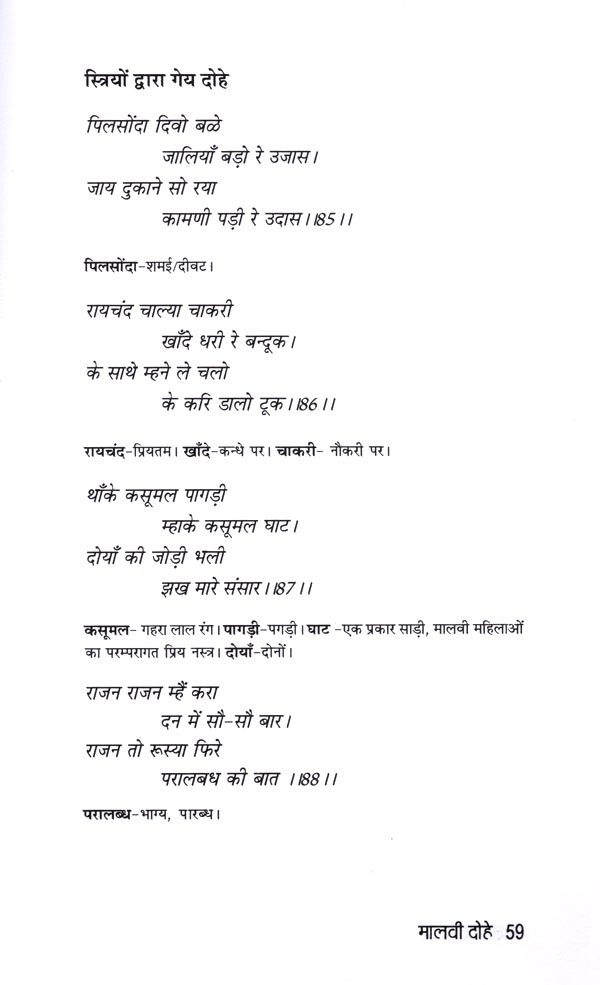 स्त्रियों द्वारा गेय दोहे
पिलसोंदा दिवो बळे
जालियाँ बड़ो रे उजास।
जाय दुकाने सो रया
कामणी पड़ी रे उदास।।85।।
पिलसोंदा-शमई/दीवट।
रायचंद चाल्या चाकरी
खाँदे धरी रे बन्दूक।
के साथे म्हने ले चलो
के करि डालो टूक।।86।।
रायचंद-प्रियतम। खाँदे-कन्धे पर। चाकरी- नौकरी पर।
थाँके कसूमल पागड़ी
म्हाके कसूमल घाट।
दोयाँ की जोड़ी भली
झख मारे संसार।।87।।
कसूमल- गहरा लाल रंग। पागड़ी-पगड़ी। घाट -एक प्रकार साड़ी, मालवी महिलाओं
का परम्परागत प्रिय नस्त्र। दोयाँ-दोनों।
राजन राजन म्हैं करा
दन में सौ-सौ बार।
राजन तो रूस्या फिरे
परालबध की बात ।।88।।
परालब्ध-भाग्य, पारब्ध।
मालवी दोहे 59